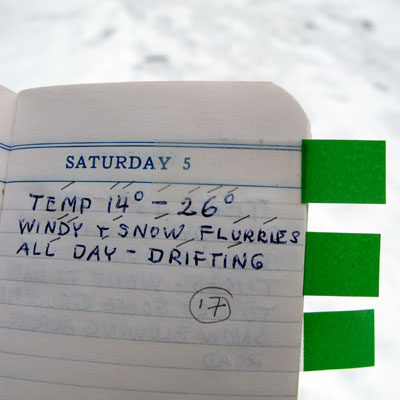 SATURDAY 5
TEMP 14° - 26°
WINDY + SNOW FLURRIES
ALL DAY - DRIFTING
17